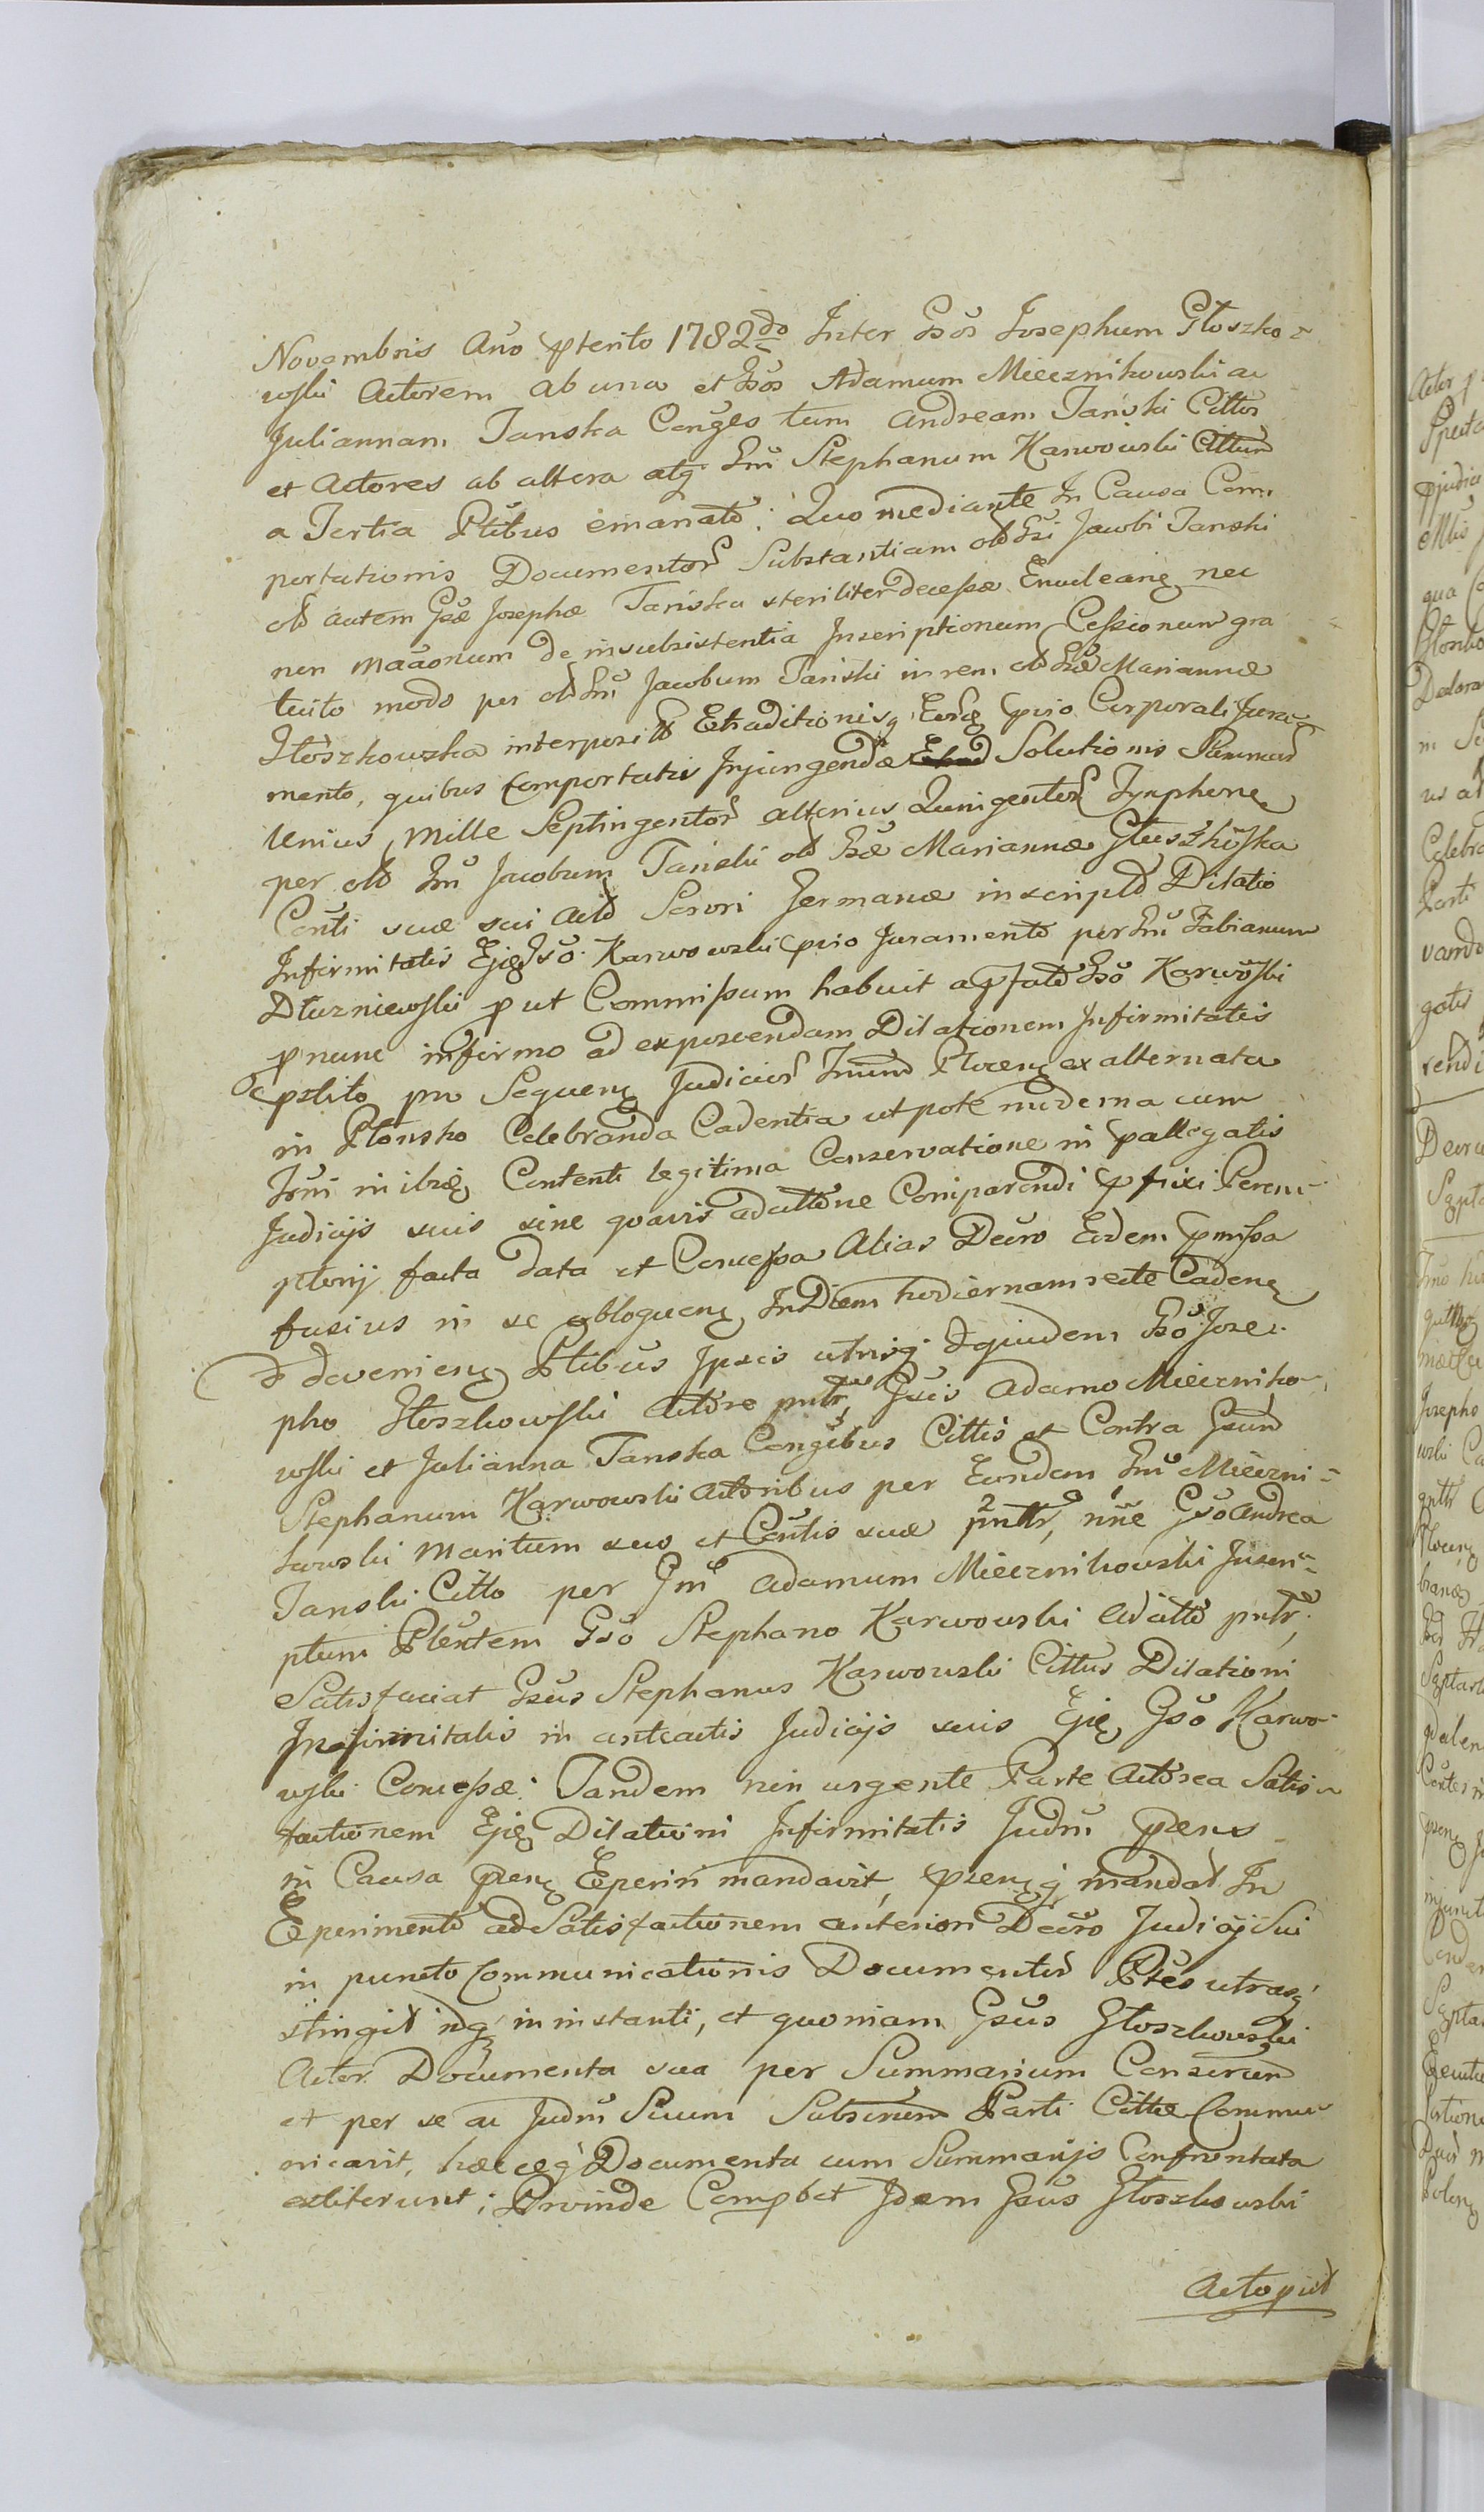 Novembris Año pterito 1782do Inter Gsos Josephum Głoszko=
wski Actorem ab una et Gsos Adamum Miecznikowski ac
Juliannam Tanska Conges tum Andream Tański Cittos
et Actores ab altera atq Gsm Stephanum Karwowski Cittum
a Tertia Ptibus emanato: Quo mediante In Causa Com-
portationis Documentor Substantiam olď Gsi Jacobi Tanski
olď autem Gsæ Josephæ Tańska steriliter decessæ Enucleanę nec
non maãonum de insubsistentia Inscriptionum Cessionum gra
tuito modo per olď Gsm Jacobum Tański in rem olď Gsæ Mariannæ
Głoszkowska interposit Extraditionisq Eorď pvio Corporali Jura
mento, quibus Comportatis Injungendæ Solutionis Summar
Unius Mille Septingentor alterius Quingentor Tynphonę
per olď Gsm Jacobum Tański olď Gsæ Mariannæ
Conti suæ sui Sorori Germanæ inscriptď Dilatio
Infirmitatis Ejdę Gso Karwowski pvio Juramento per Gsm Fabianum
Dłuzniewski put Commissum habuit a pfato Gso Karwowski
pnunc infirmo ad exposcendam Dilationem Infirmitatis
pstito pro Sequenę Judicior Plocenę ex alternata
in Płonsko Celebranda Cadentia utpote moderna cum
Contenti legitima Conservatione in pallegatis
Judicijs suis sine quavis adcittone Comparendi pfixi Perem-
ptorij facta data et Concessa Alias Decro Eodem pmissa
fusius in se obloquenę In Diem hodiernam recte Cadenę
devenienę Ptibus Ipsis utrisq equidem Gso Jose-
pho Głoszkowski Actore pntr, Gsis Adamo Mieczniko-
wski et Julianna Tanska Congibus Cittis et Contra Gsum
Stephanum Karwowski Actoribus per Eundem Gsm Mieczni=
kowski Maritum suo et Contis suæ 2 pnttr, nñe Gso Andrea
Tanski Citto per Gsm Adamum Miecznikowski Inscri-
ptum Gso Stephano Karwowski adcitto pntr,
Satisfaciat Gsus Stephanus Karwowski Cittus Dilationi
Infirmitatis in anteactis Judicijs suis Ejdę Gso Karwo-
wski Concessæ. Tandem non urgente Parte Actorea Satis=
factionem Ejdę Dilationi Infirmitatis Judm præns
in Causa prænę Eperiri mandavit, prænęq mandať In
Eperimento ad Satisfactionem anteriori Decro Judicij Sui
in puncto Communicationis Documentor Ptes utrasq
stringit idq in instanti, et quoniam Gsus Głoszkowski
Actor Documenta sua per Summarium Conserum
et per se ac Judm Suum Subscrum Parti Cittæ Commu-
nicavit, hæcceq Documenta cum Summarijs Confrontata
extiterunt; Proinde Compbet Idem Gsus Głoszkowski
Actopiď